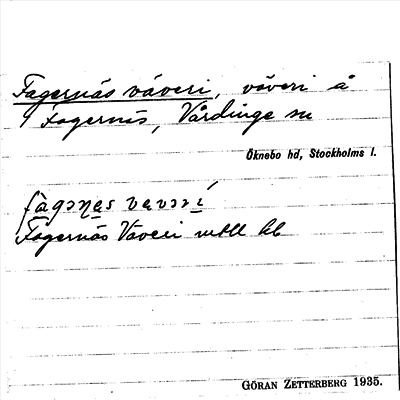 Fagernäs väveri, väveri å
Fagernäs, Vårdinge sn
Öknebo hd, Stockholms l.
Fagernäs Väveri
GÖRAN ZETTERBERG 1935.